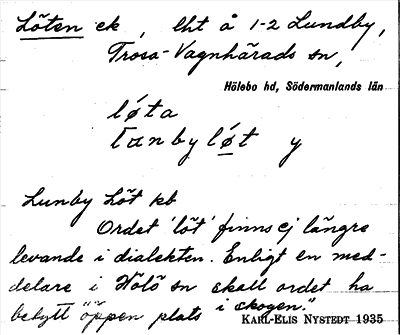 Löten ek, lht å 1-2 Lundby,
Trosa-Vagnhärads sn,
Hölebo hd, Södermanlands län
lø̀ta
lɑnbylø̀t y
Lunby Löt kb
Ordet 'löt' finns ej längre
levande i dialekten. Enligt en med-
delare i Hölö sn skall ordet ha
betytt "öppen plats i skogen."
KARL-ELIS NYSTEDT 1935